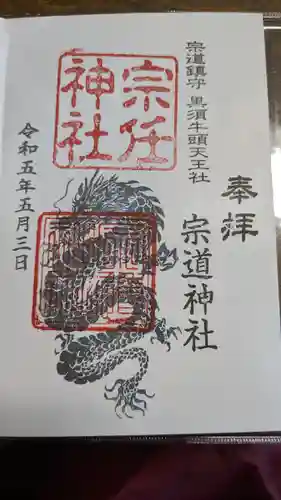 奉拝
宗道神社
宗道鎮守 黒須牛頭天王社
宗任
神社
令和五年五月三日